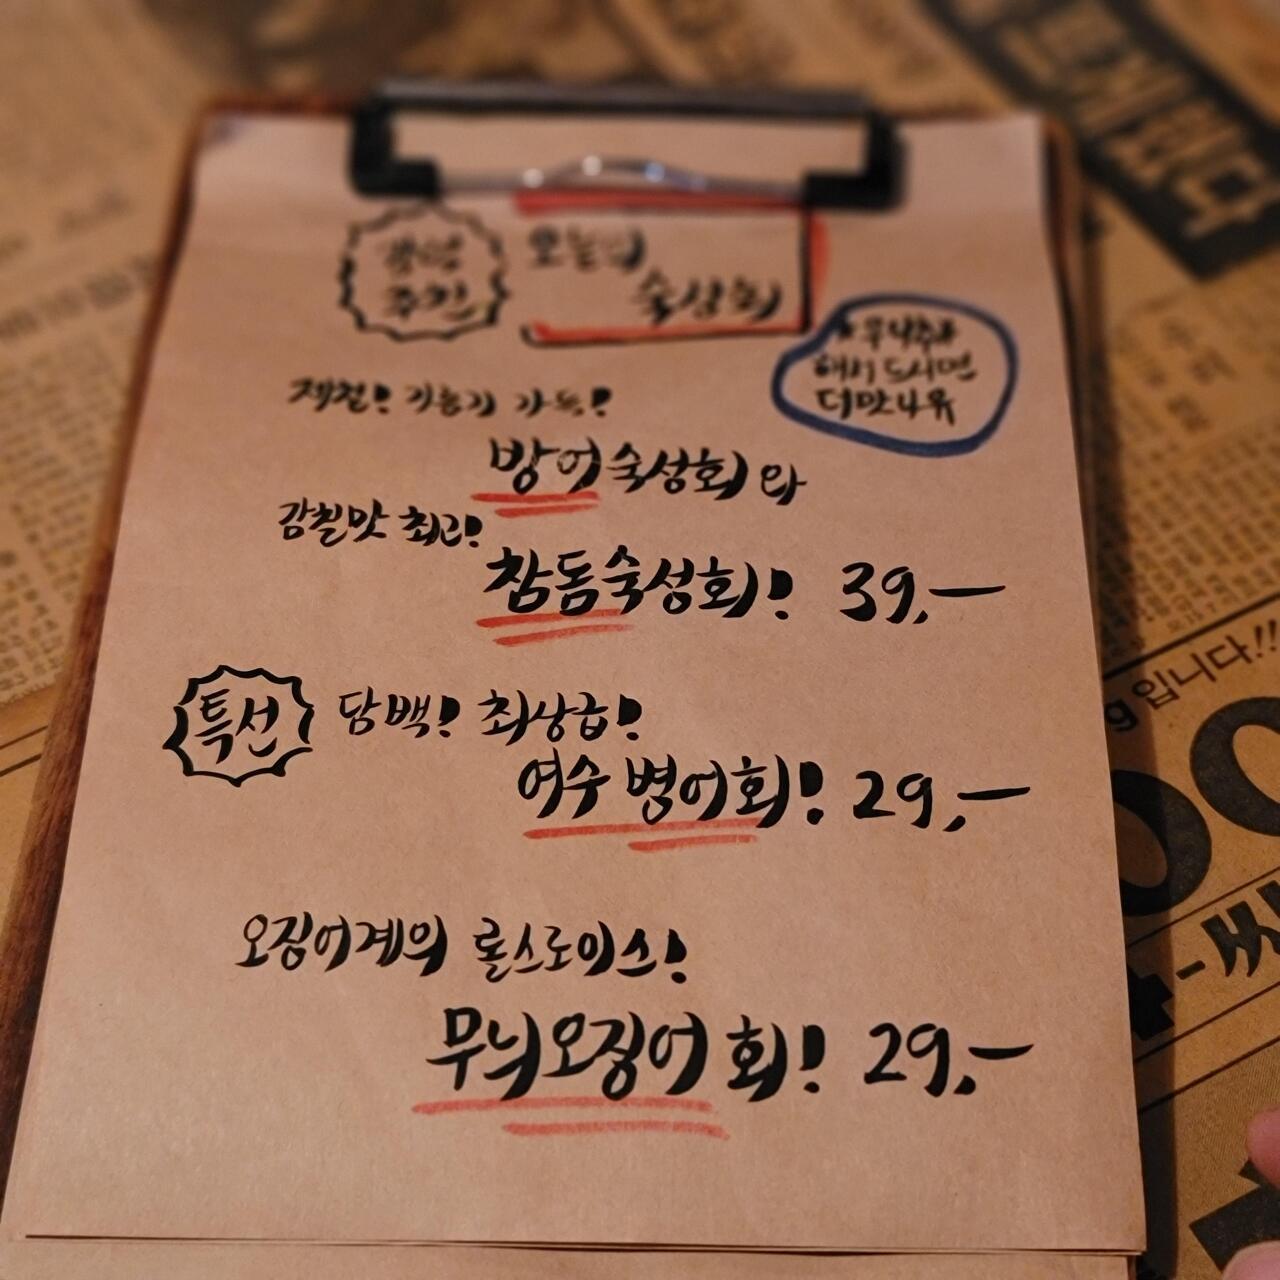 강력
추천
오늘의
숙성회
해서 드시면
더맛나유
제철! 기름기 가득!
방어숙성회와
감칠맛 최고!
참돔숙성회! 39,—
특선
담백! 최상급!
여수 병어회! 29,—
오징어계의 롤스로이스!
무늬오징어 회! 29,—
입니다!!